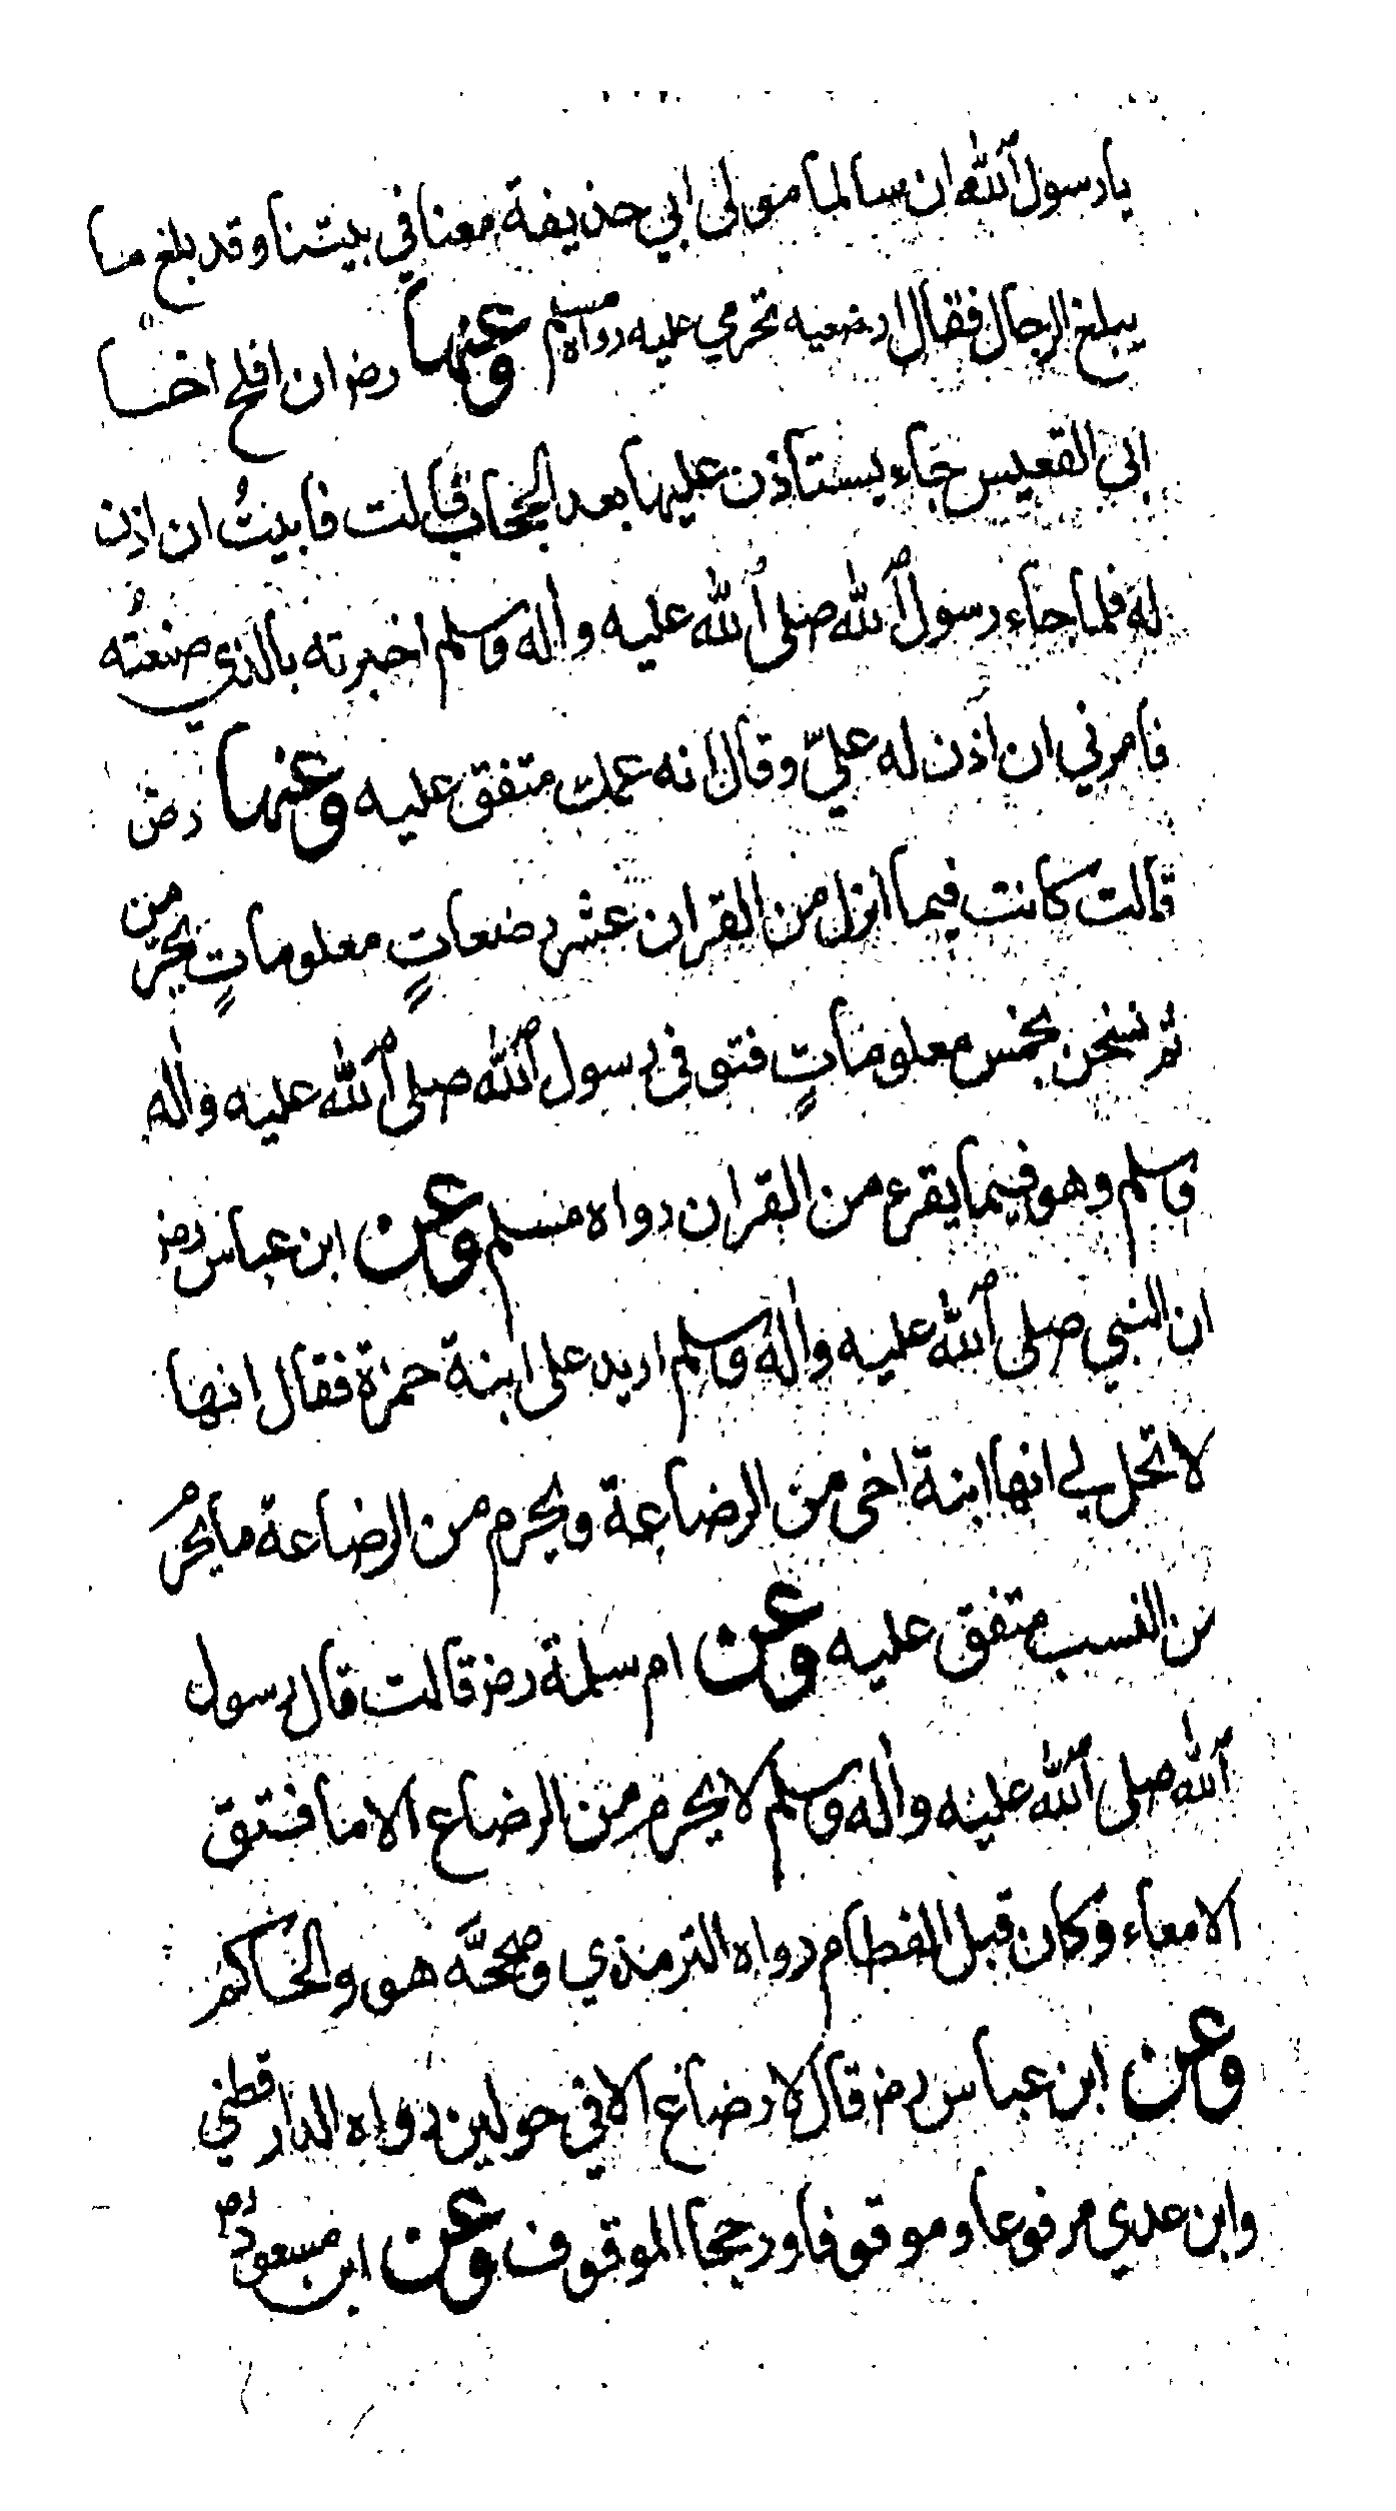 يا رسول الله ان سالما مولى ابي حذيفة معنا في بيتنا وقد بلغ ما
يبلغ الرجال فقال ارضعيه تحرمي عليه رواه مسلم وعنها رض ان افلح اخا
ابي القعيس جاء يستاذن عليها بعد الحجاب قالت فابيتُ ان اذِن
له فلما جاء رسول الله صلى الله عليه واله وسلم اخبرته بالذي صنعتُه
فامرني ان اذن له عليّ وقال انه عمك متفق عليه وعنها رض
قالت كانت فيما انزل من القران عشر رضعاتٍ معلوماتٍ يحرمن
ثم نسخن بخمس معلوماتٍ فتوفى رسول الله صلى الله عليه واله
وسلم وهو فيما يقرء من القران رواه مسلم وعن ابن عباس رض
ان النبي صلى الله عليه واله وسلم اريد على ابنة حمزة فقال انها
لا تحل لي انها ابنة اخى من الرضاعة ويحرم من الرضاعة ما يحرُم
من النسب متفق عليه وعن ام سلمة رض قالت قال رسول
الله صلى الله عليه واله وسلم لا يحرم من الرضاع الا ما فتق
الامعاء وكان قبل الفطام رواه الترمذي وصححَّه هو والحاكم
وعن ابن عباس رض قال لا رضاع الا في حولين رواه الدارقطني
وابن عدي مرفوعا وموقوفا ورجحا الموقوف وعن ابن مسعود رض